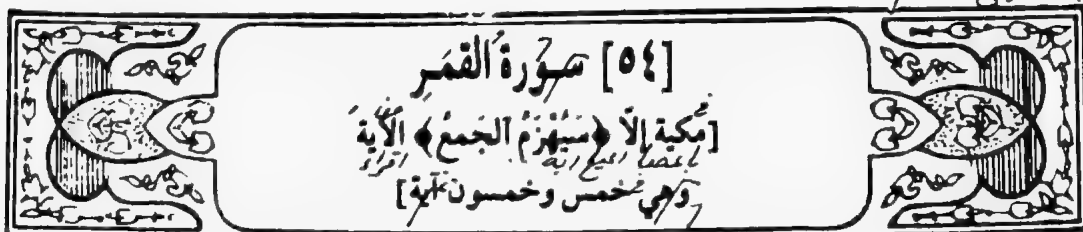 [٥٤] سُورَةُ القَمَرِ
[مكية إلا ﴿سَيُهْزَمُ الْجَمْعُ﴾ الآية
وهي خمس وخمسون آية]